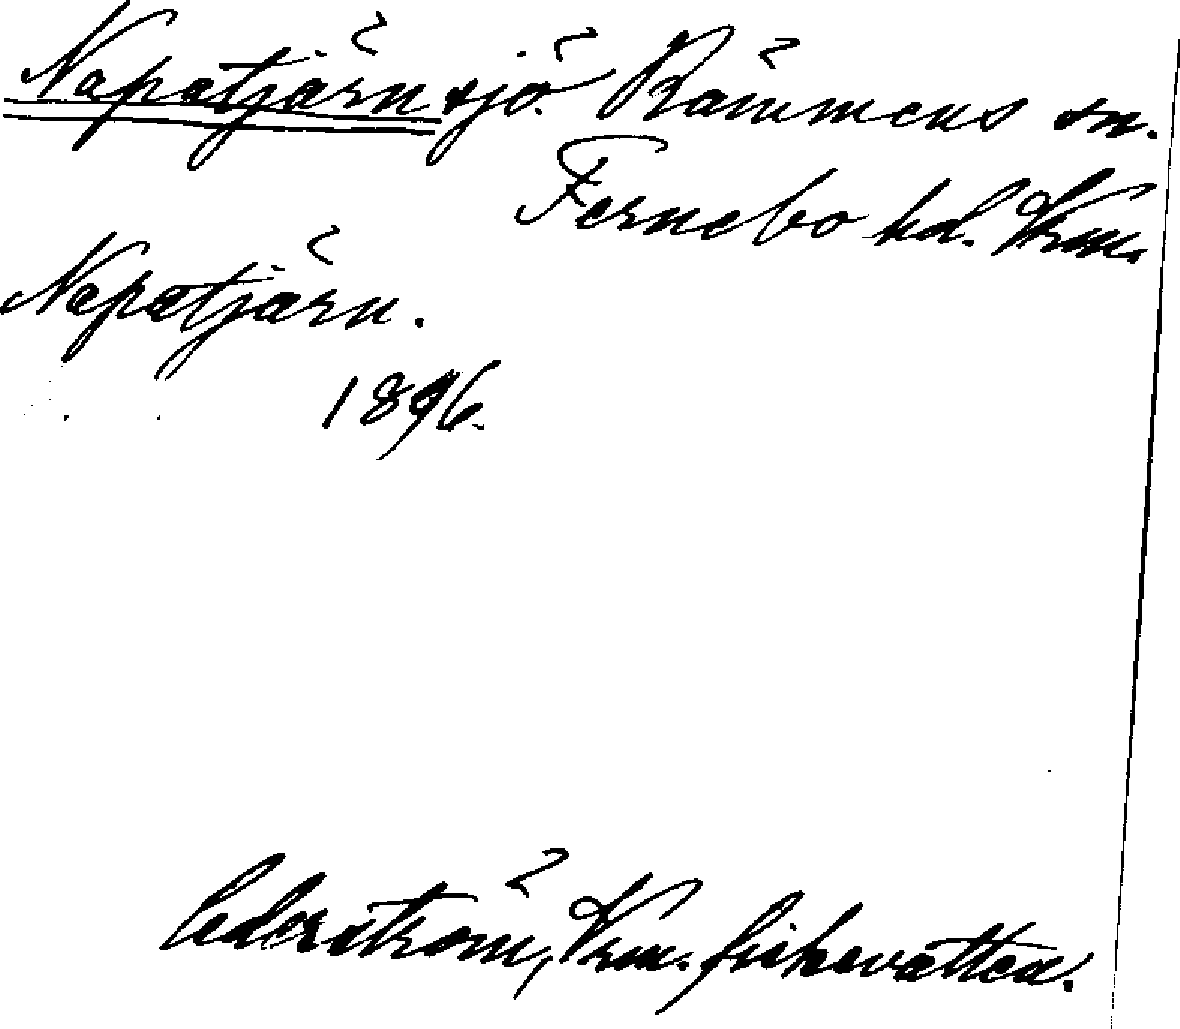 Napatjärn sjö. Rämmens sn.
Fernebo hd. Vrm.
Napatjärn.
1896.
Cederström, Vrm. fiskevatten.